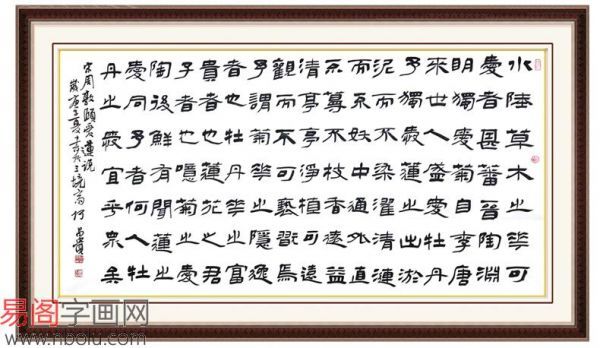 水陸草木之華可
愛者甚蕃晉陶淵
明獨愛菊自李唐
來世人盛愛牡丹
予獨愛蓮之出淤
泥而不染濯清漣
而不妖中通外直
不蔓不枝香遠益
清亭亭淨植可遠
觀而不可褻翫焉
予謂菊華之隱逸
者也牡丹華之富
貴者也蓮花之君
子者也噫菊之愛
陶後鮮有聞蓮之
愛同予者何人牡
丹之愛宜乎眾矣
宋周敦頤愛蓮說
易阁字画网
www.nbolu.com